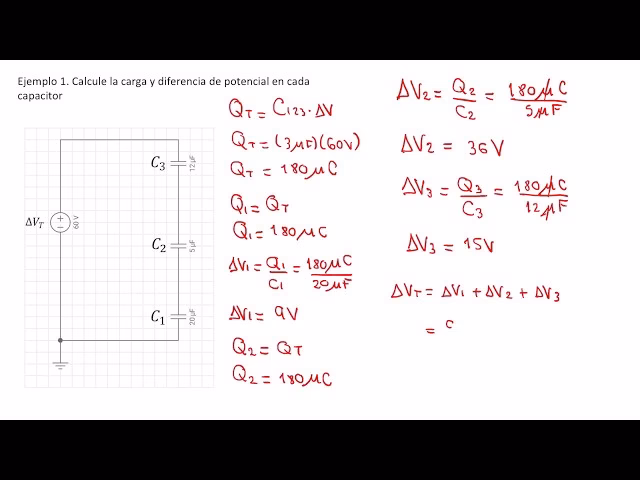 Ejemplo 1. Calcule la carga y diferencia de potencial en cada
capacitor
C₃
12 µF
ΔV_T
60 V
C₂
5 µF
C₁
20 µF
Q_T = C₁₂₃ · ΔV
Q_T = (3 µF)(60V)
Q_T = 180 µC
Q₁ = Q_T
Q₁ = 180 µC
ΔV₁ = Q₁/C₁ = 180 µC/20 µF
ΔV₁ = 9V
Q₂ = Q_T
Q₂ = 180 µC
ΔV₂ = Q₂/C₂ = 180 µC/5 µF
ΔV₂ = 36 V
ΔV₃ = Q₃/C₃ = 180 µC/12 µF
ΔV₃ = 15V
ΔV_T = ΔV₁ + ΔV₂ + ΔV₃
=